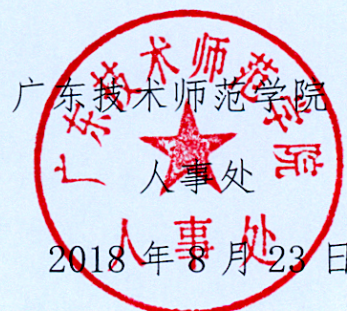 广东技术师范学院
人事处
2018 年 8 月 23 日
广东技术师范学院
人事处